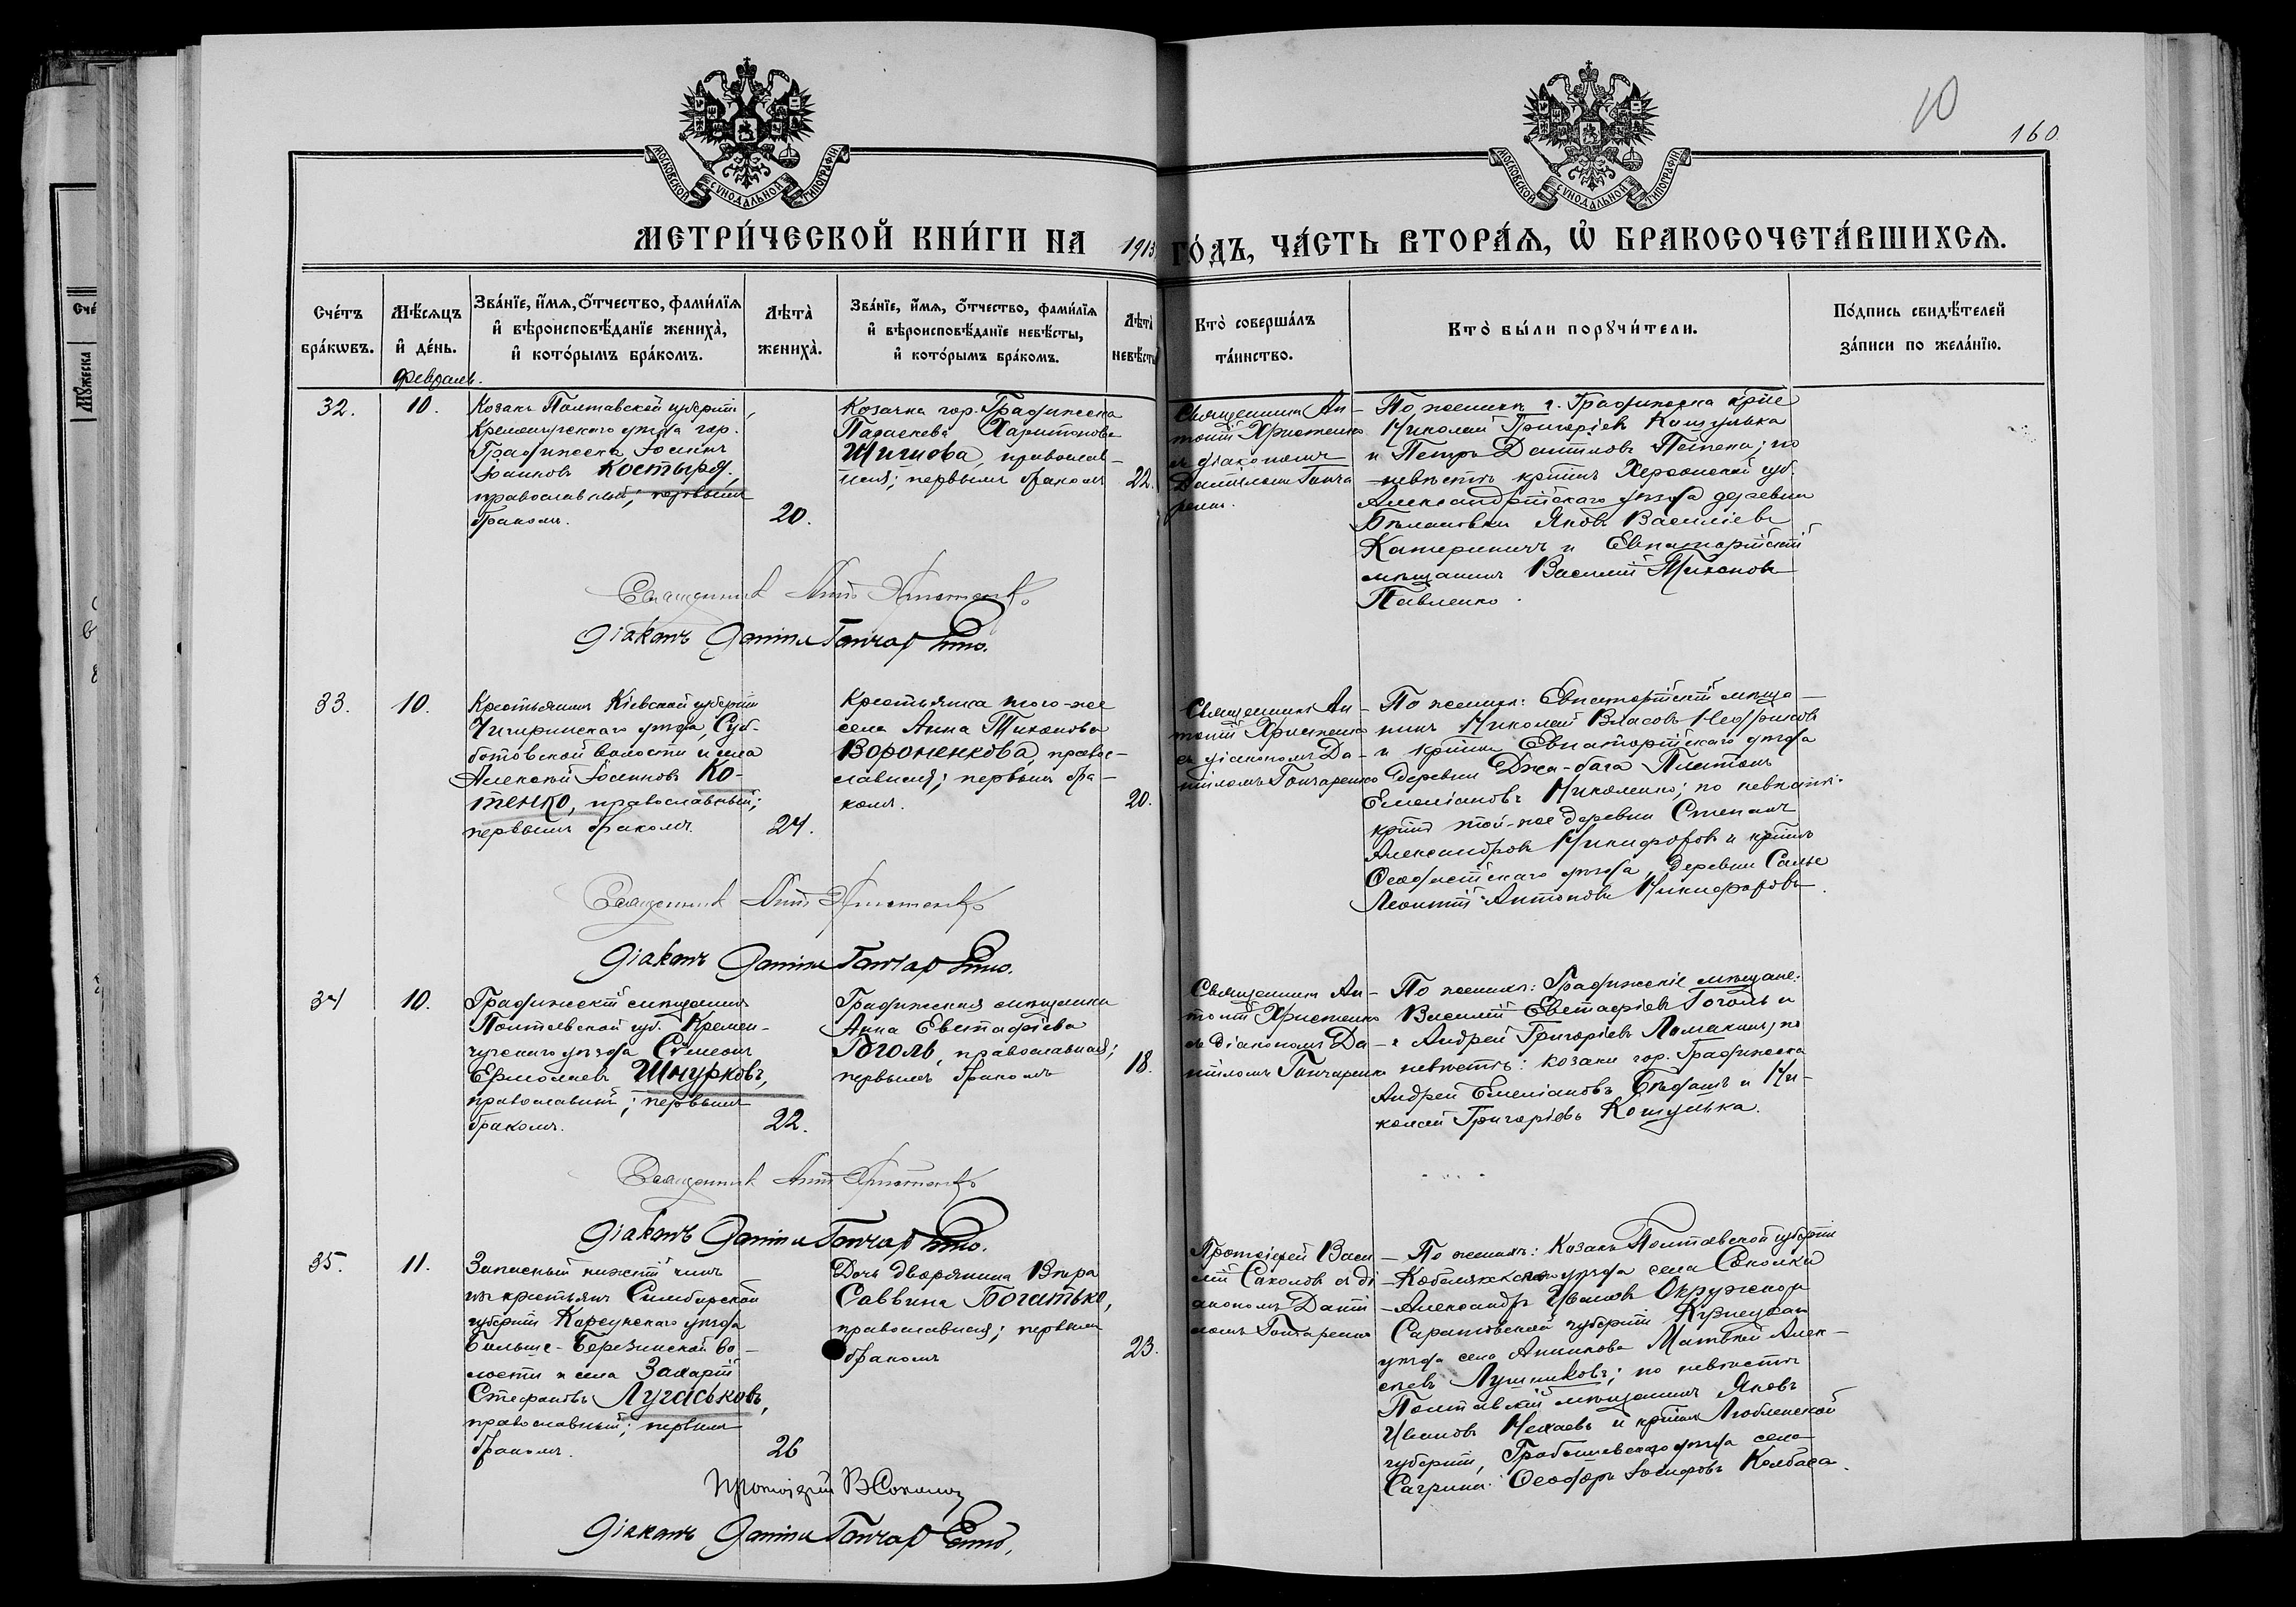 10
160
МОСКОВСКОЙ СѴНОДАЛЬНОЙ ТИПОГРАФІИ
МОСКОВСКОЙ СѴНОДАЛЬНОЙ ТИПОГРАФІИ
МЕТРИ́ЧЕСКОЙ КНИ́ГИ НА 1913 ГО́ДЪ, ЧА́СТЬ ВТОРА́Ѧ, Ѡ҆ БРАКОСОЧЕТА́ВШИХСѦ.
Сче́тъ бра́кѡвъ.
Мѣ́сяцъ и҆ де́нь.
Зва́нїе, и҆́мѧ, ѻ҆́тчество, фами́лїѧ и҆ вѣроисповѣ́данїе жениха̀, и҆ кото́рымъ бра́комъ.
Лѣта̀ жениха̀.
Зва́нїе, и҆́мѧ, ѻ҆́тчество, фами́лїѧ и҆ вѣроисповѣ́данїе невѣ́сты, и҆ кото́рымъ бра́комъ.
Лѣта̀ невѣ́сты
Кто̀ соверша́лъ та́инство.
Кто̀ бы́ли порꙋчи́тели.
По́дпись свидѣ́телей за́писи по жела́нїю.
Февраль.
32.
10.
Козакъ Полтавской губерніи,
Кременчугскаго уѣзда гор.
Градижска Іоаннъ
Іоанновъ Костыря,
православный; первымъ
бракомъ.
20.
Козачка гор. Градижска
Параскева Харитонова
православ-
ная; первымъ бракомъ
22.
Священникъ Ан-
тоній Христенко
съ діакономъ
Даніиломъ Гонча
ренко.
По женихѣ г. Градижска
Николай Григоріевъ Кошулька
и Петръ Даниловъ; по
невѣстѣ крѣст‑нъ Херсонской губ.
Александрійскаго уѣзда деревни
Яковъ Василіевъ
Катериничъ и Евпаторійскій
мѣщанинъ Василій Тихоновъ
Павленко.
Священникъ Ант. Христенко
Діаконъ Даніилъ Гончаренко.
33.
10.
Крестьянинъ Кіевской губерніи
Чигиринскаго уѣзда, Суб-
ботовской волости и села
Алексѣй Іоанновъ Ко-
тенко, православный;
первымъ бракомъ.
24.
Крестьянка того-же
села Анна Тихонова
Вороненкова, право-
славная; первымъ бра-
комъ.
20.
Священникъ Ан-
тоній Христенко
съ діакономъ Да-
ніиломъ Гончаренко
По женихѣ: Евпаторійскій мѣща-
нинъ Николай Власовъ
и Евпаторійскаго уѣзда
деревни Платонъ
Емеліановъ Николенко; по невѣстѣ:
той-же деревни Степанъ
Александровъ Никифоровъ и
Ѳеодосійскаго уѣзда, деревни
Леонтій Антоновъ Никифоровъ.
Священникъ Ант. Христенко
Діаконъ Даніилъ Гончаренко.
34
10.
Градижскій мѣщанинъ
Полтавской губ. Кремен-
чугскаго уѣзда Симеонъ
Ермолаевъ Шнурковъ,
православный; первымъ
бракомъ.
22.
Градижская мѣщанка
Анна Евстафіева
Гоголь, православная;
первымъ бракомъ
18.
Священникъ Ан-
тоній Христенко
съ діакономъ Да-
ніиломъ Гончаренко
По женихѣ: Градижскіе мѣщане:
Василій Евстафіевъ Гоголь и
Андрей Григоріевъ Ломакинъ; по
невѣстѣ: козаки гор. Градижска
Андрей Емеліановъ и Ни-
колай Григоріевъ Кошулька.
Священникъ Ант. Христенко
Діаконъ Даніилъ Гончаренко.
35.
11.
Запасный нижній чинъ
изъ крестьянъ Симбирской
губерніи Карсунскаго уѣзда
Больше-Березинской во-
лости и села Захарій
Стефановъ Лугаськовъ,
православный; первымъ
бракомъ.
26
Дочь дворянина Вѣра
Саввина Богатько,
православная; первымъ
бракомъ
23.
Протоіерей Васи
лій Соколовъ съ ді
акономъ Даніи
ломъ Гончаренко
По женихѣ: Козакъ Полтавской губерніи
Кобелякскаго уѣзда села Соколки
Александръ Ивановъ
Саратовской губерніи Кузнецкаго
уѣзда села Анненкова Матвѣй Алек-
сѣевъ Лушниковъ; по невѣстѣ
Полтавскій мѣщанинъ Яковъ
Ивановъ Нехаевъ и Люблинской
губерніи, уѣзда села
Ѳеодоръ Іосифовъ Колбаса.
Протоіерей В Соколов
Діаконъ Даніилъ Гончаренко.